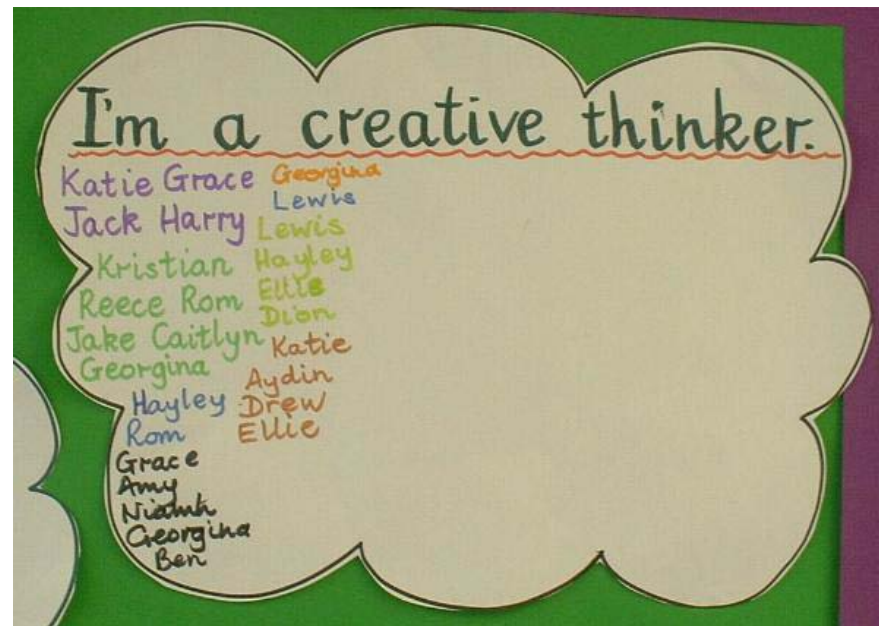 I'm a creative thinker.
Katie Grace
Jack Harry
Kristian
Reece Rom
Jake Caitlyn
Georgina
Hayley
Rom
Grace
Amy
Niamh
Georgina
Ben
Georgina
Lewis
Lewis
Hayley
Ellie
Dion
Katie
Aydin
Drew
Ellie